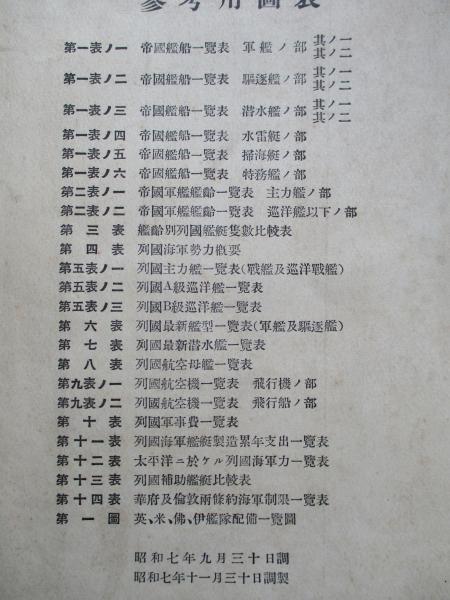 參考用圖表
第一表ノ一 帝國艦船一覽表 軍艦ノ部 其ノ一 其ノ二
第一表ノ二 帝國艦船一覽表 驅逐艦ノ部 其ノ一 其ノ二
第一表ノ三 帝國艦船一覽表 潜水艦ノ部 其ノ一 其ノ二
第一表ノ四 帝國艦船一覽表 水雷艇ノ部
第一表ノ五 帝國艦船一覽表 掃海艇ノ部
第一表ノ六 帝國艦船一覽表 特務艦ノ部
第二表ノ一 帝國軍艦艦齡一覽表 主力艦ノ部
第二表ノ二 帝國軍艦艦齡一覽表 巡洋艦以下ノ部
第三表 艦齡別列國艦艇隻數比較表
第四表 列國海軍勢力概要
第五表ノ一 列國主力艦一覽表(戰艦及巡洋戰艦)
第五表ノ二 列國A級巡洋艦一覽表
第五表ノ三 列國B級巡洋艦一覽表
第六表 列國最新艦型一覽表(軍艦及驅逐艦)
第七表 列國最新潜水艦一覽表
第八表 列國航空母艦一覽表
第九表ノ一 列國航空機一覽表 飛行機ノ部
第九表ノ二 列國航空機一覽表 飛行船ノ部
第十表 列國軍事費一覽表
第十一表 列國海軍艦艇製造累年支出一覽表
第十二表 太平洋ニ於ケル列國海軍力一覽表
第十三表 列國補助艦艇比較表
第十四表 華府及倫敦兩條約海軍制限一覽表
第一圖 英、米、佛、伊艦隊配備一覽圖
昭和七年九月三十日調
昭和七年十一月三十日調製